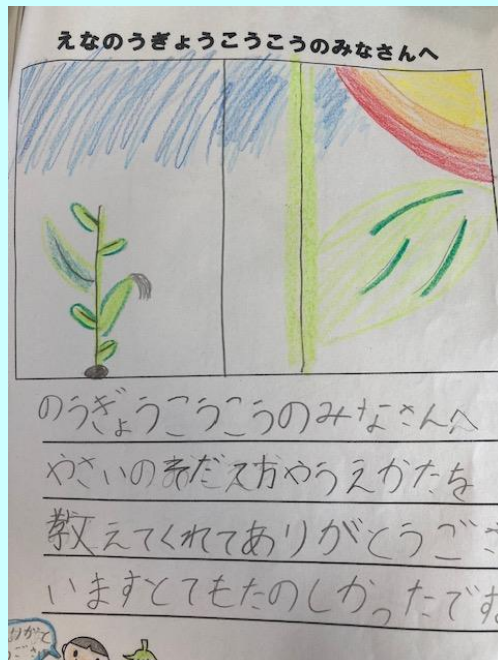 えなのうぎょうこうこうのみなさんへ
のうぎょうこうこうのみなさんへ
やさいのそだて方やうえかたを
教えてくれてありがとうござ
いますとてもたのしかったです